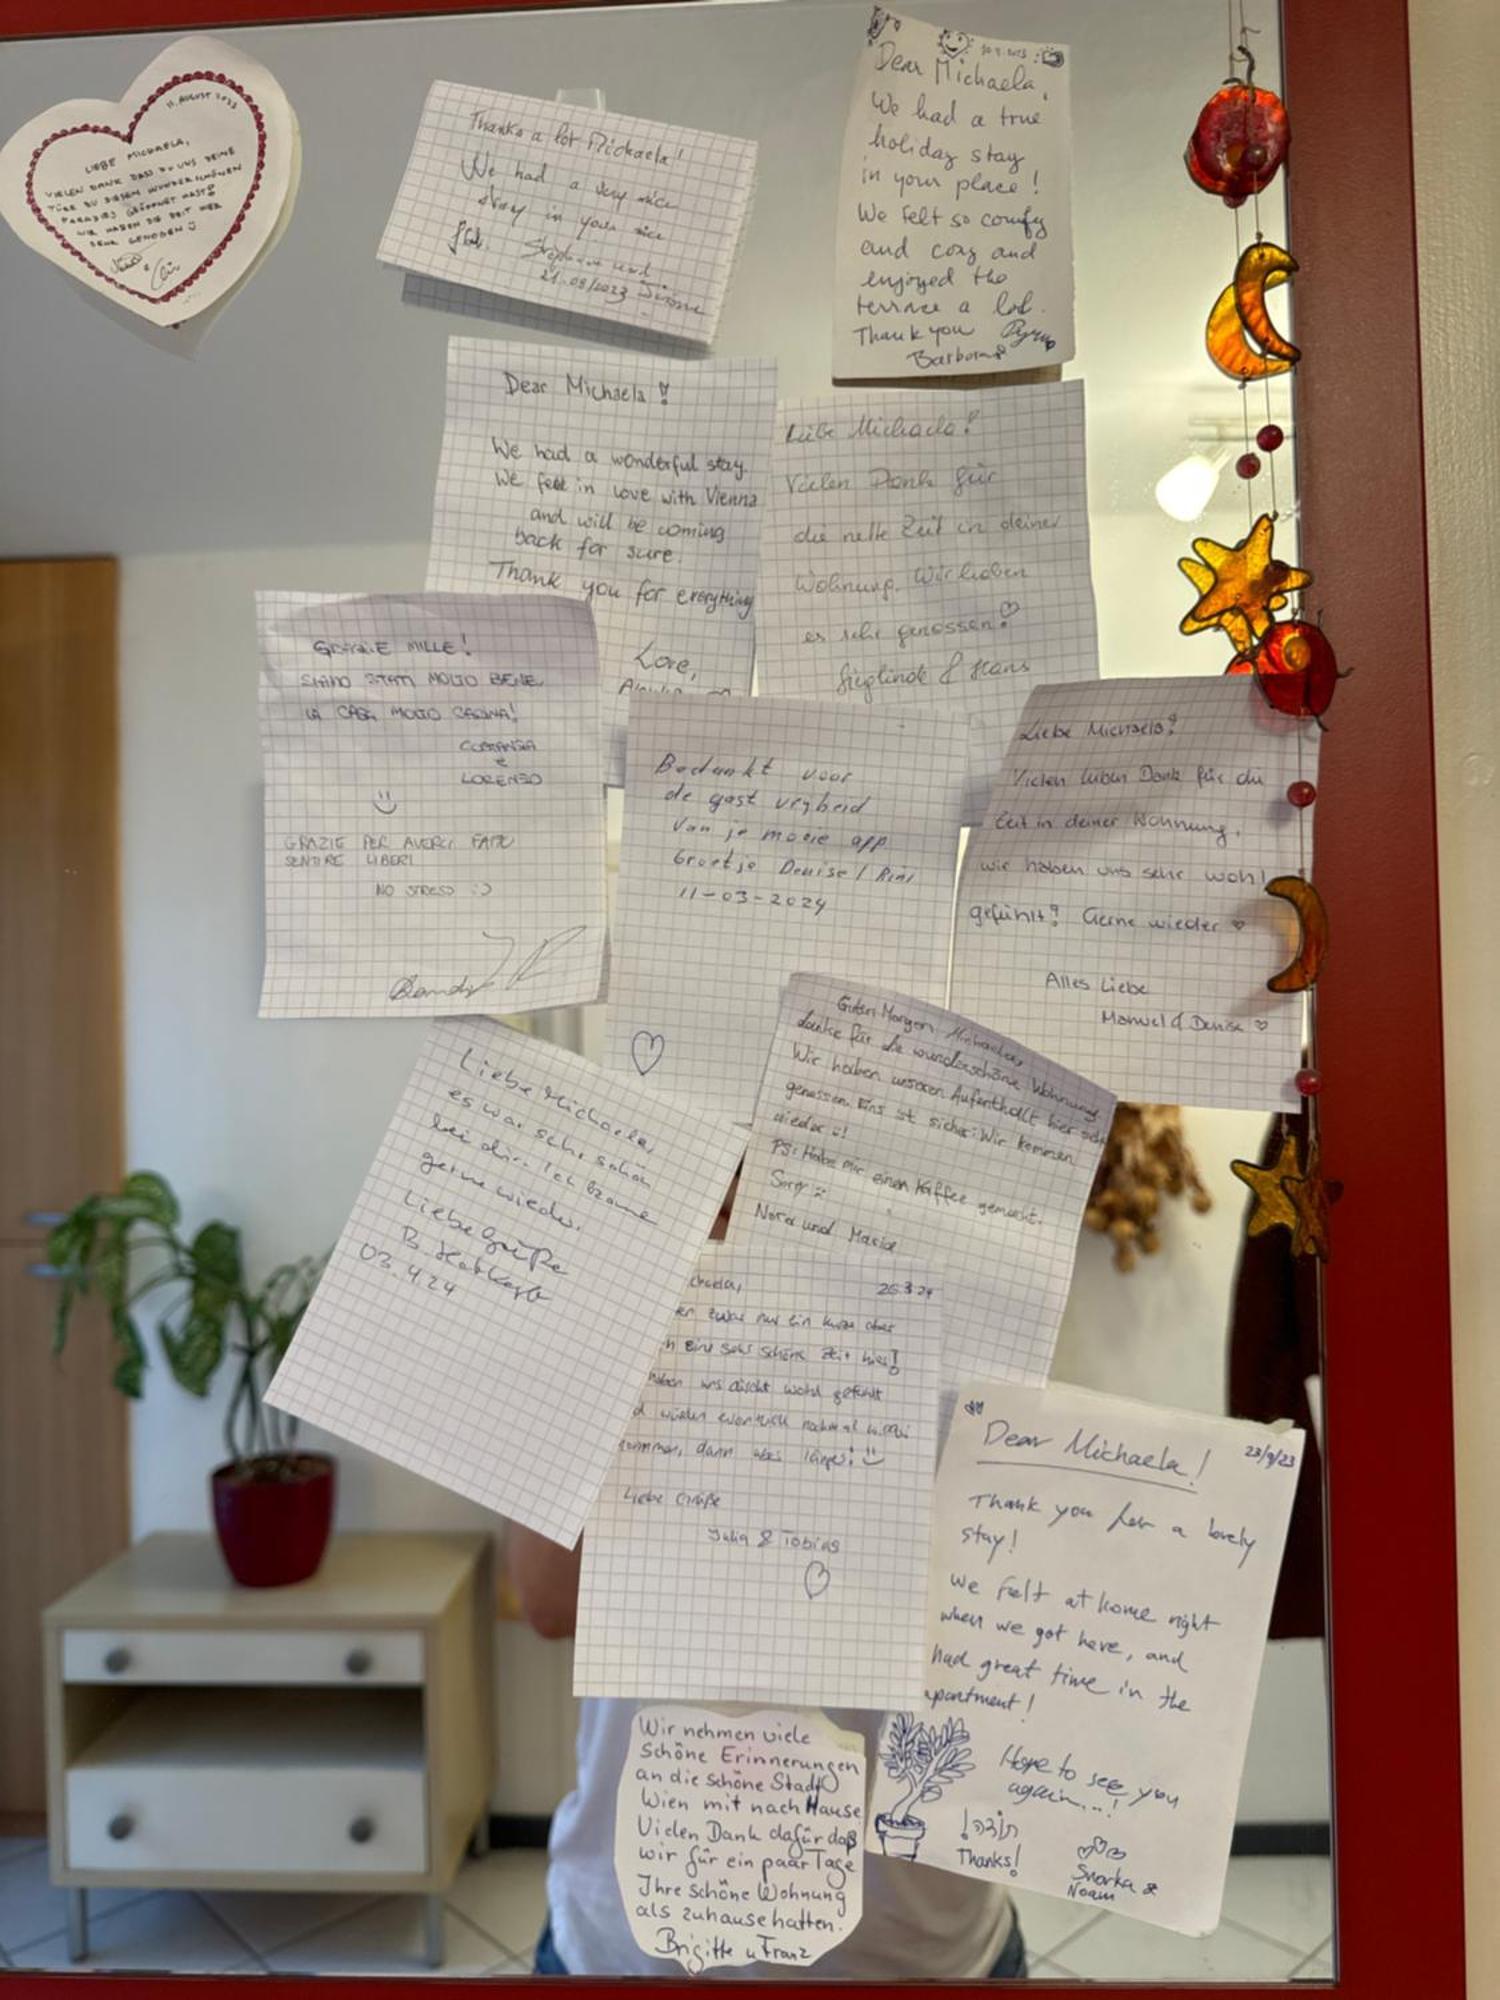 11. AUGUST 2023
LIEBE MICHAELA,
VIELEN DANK DASS DU UNS DEINE
TÜRE ZU DIESEM WUNDERSCHÖNEN
PARADIES GEÖFFNET HAST!
WIR HABEN DIE ZEIT HIER
SEHR GENOSSEN
Thanks a lot Michaela!
We had a very nice
stay in your nice
flat. Stephan und
21.08/2023 Simone
Dear Michaela,
We had a true
holiday stay
in your place!
We felt so comfy
and cozy and
enjoyed the
terrace a lot.
Thank you
Barbora
Dear Michaela!
We had a wonderful stay.
We fell in love with Vienna
and will be coming
back for sure.
Thank you for everything
Love,
Liebe Michaela!
Vielen Dank für
die nette Zeit in deiner
Wohnung. Wir haben
es sehr genossen!
Sieglinde & Hans
GRAZIE MILLE!
SIAMO STATI MOLTO BENE
LA CASA MOLTO CARINA!
COSTANZA
e
LORENZO
GRAZIE PER AVERCI FATTO
SENTIRE LIBERI
NO STRESS :)
Bedankt voor
de gast vrijheid
van je mooie app
Groetje Denise / Rini
11-03-2024
Liebe Michaela!
Vielen lieben Dank für die
Zeit in deiner Wohnung,
wir haben uns sehr wohl
gefühlt! Gerne wieder
Alles Liebe
Manuel & Denise
Guten Morgen Michaela,
danke für die wunderschöne Wohnung
Wir haben unseren Aufenthalt hier sehr
genossen. Eins ist sicher: Wir kommen
wieder!
PS: Habe mir einen Kaffee gemacht.
Sorry
Nora und Maria
Liebe Michaela,
es war sehr schön
bei dir. Ich komme
gerne wieder.
Liebe Grüße
B.
03.4.24
chaela, 26.3.24
en zwar nur ein kurze aber
h eine sehr schöne Zeit hier!
haben uns gefühlt
d würden nochmal
kommen, dann aber länger!
Liebe Grüße
Julia & Tobias
Dear Michaela! 23/9/23
Thank you for a lovely
stay!
We felt at home right
when we got here, and
had great time in the
apartment!
Hope to see you
again...!
תודה!
Thanks!
Snorka &
Noam
Wir nehmen viele
schöne Erinnerungen
an die schöne Stadt
Wien mit nach Hause
Vielen Dank dafür daß
wir für ein paar Tage
Ihre schöne Wohnung
als zuhause hatten.
Brigitte u Franz